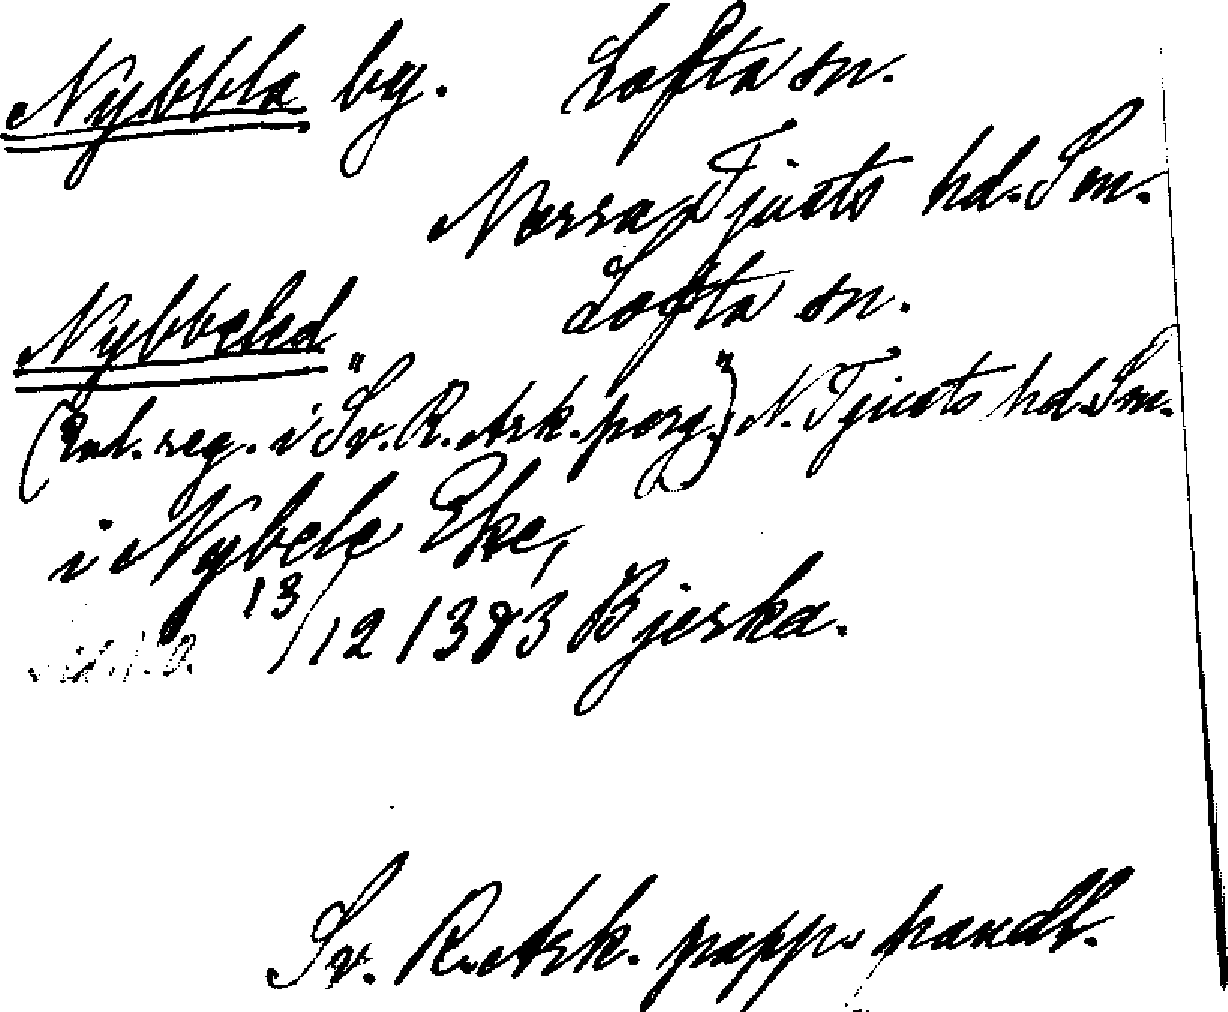 Nybbla by. Lofta sn.
Norra Tjusts hd. Sm.
Nybbeled Lofta sn.
(Enl. reg. i "Sv. R. Ark. perg.") N. Tjusts hd. Sm.
i Nybele Eke,
13/12 1383 Bjerka.
Sv. R. Ark. papp. handl.